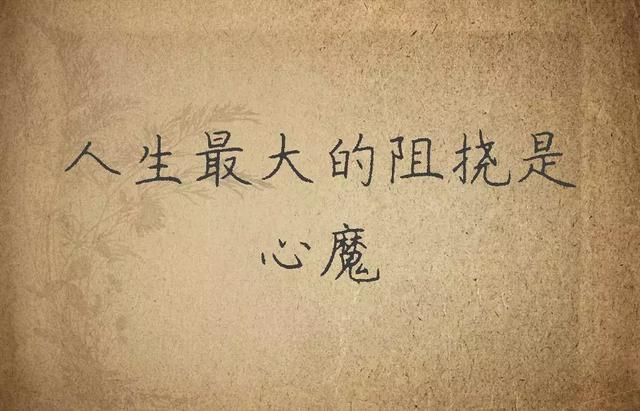 人生最大的阻挠是
心魔